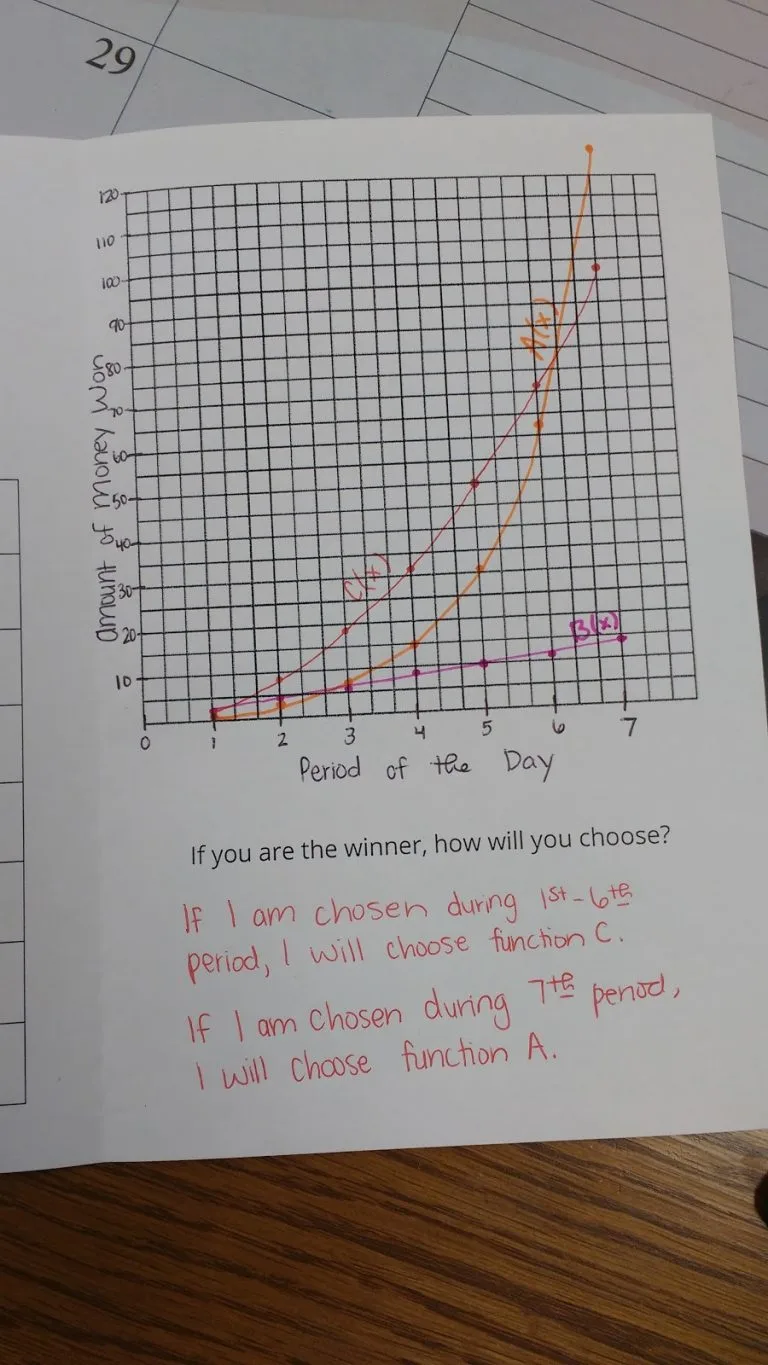 29
120
110
100
90
80
70
60
50
40
30
20
10
Amount of Money Won
A(x)
C(x)
B(x)
0 1 2 3 4 5 6 7
Period of the Day
If you are the winner, how will you choose?
If I am chosen during 1st-6th
period, I will choose function C.
If I am chosen during 7th period,
I will choose function A.